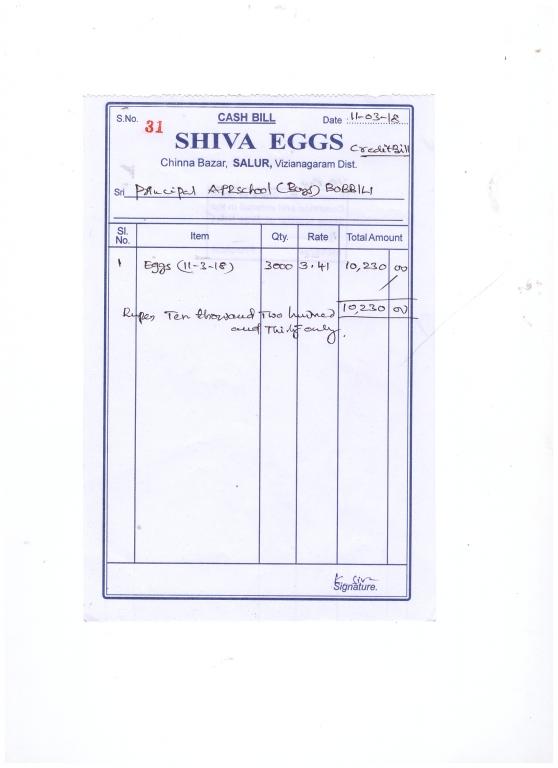 S.No. 31 CASH BILL Date : 11-03-18
SHIVA EGGS Credit Bill
Chinna Bazar, SALUR, Vizianagaram Dist.
Sri Principal APRSchool (Boys) BOBBILI
Sl. No. Item Qty. Rate Total Amount
1 Eggs (11-3-18) 3000 3.41 10,230 00
10,230 00
Rupes Ten thousand Two hundred
and Thirty only.
K Siva
Signature.